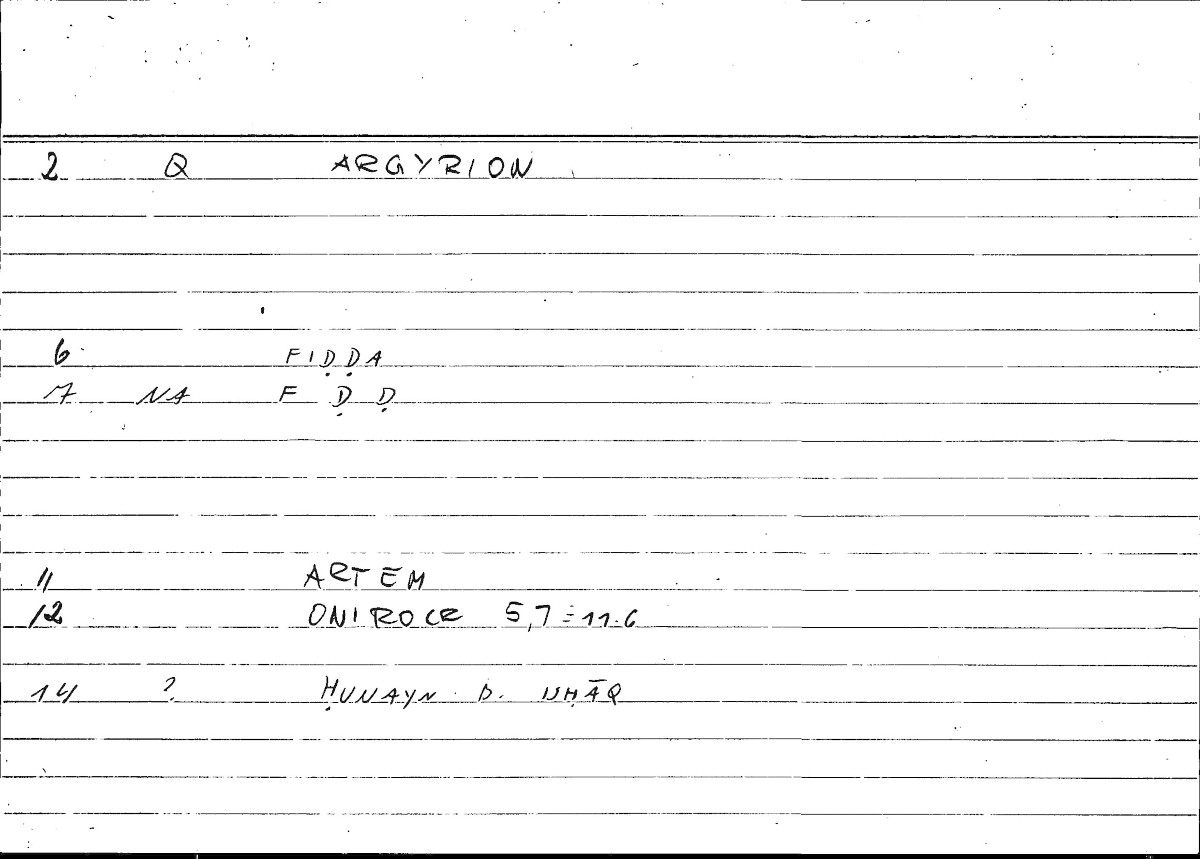 2 Q ARGYRION
6 FIḌḌA
7 NA F Ḍ Ḍ
11 ARTEM
12 ONIROCR 5,7 = 11.6
14 ? ḤUNAYN B. ISḤĀQ